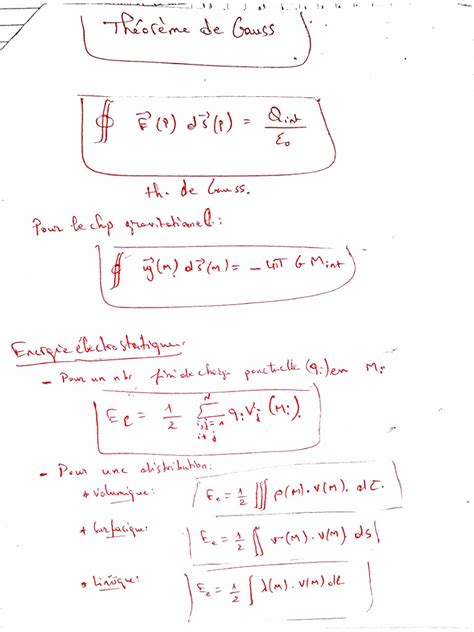 Théorème de Gauss
∯ E⃗(P) dS⃗(P) = Qint / ε₀
th. de Gauss.
Pour le chp gravitationnel :
∯ g⃗(M) dS⃗(M) = − 4π G Mint
Energie électrostatique:
- Pour un nbr fini de charge ponctuelle (qi) en Mi
Ee = 1/2 Σ(i,j=1, i≠j)^N qi Vj (Mi).
- Pour une distribution:
* volumique: Ee = 1/2 ∭ ρ(M). V(M). dτ.
* Surfacique: Ee = 1/2 ∬ σ(M). V(M) dS
• Linéique: Ee = 1/2 ∫ λ(M). V(M) dl